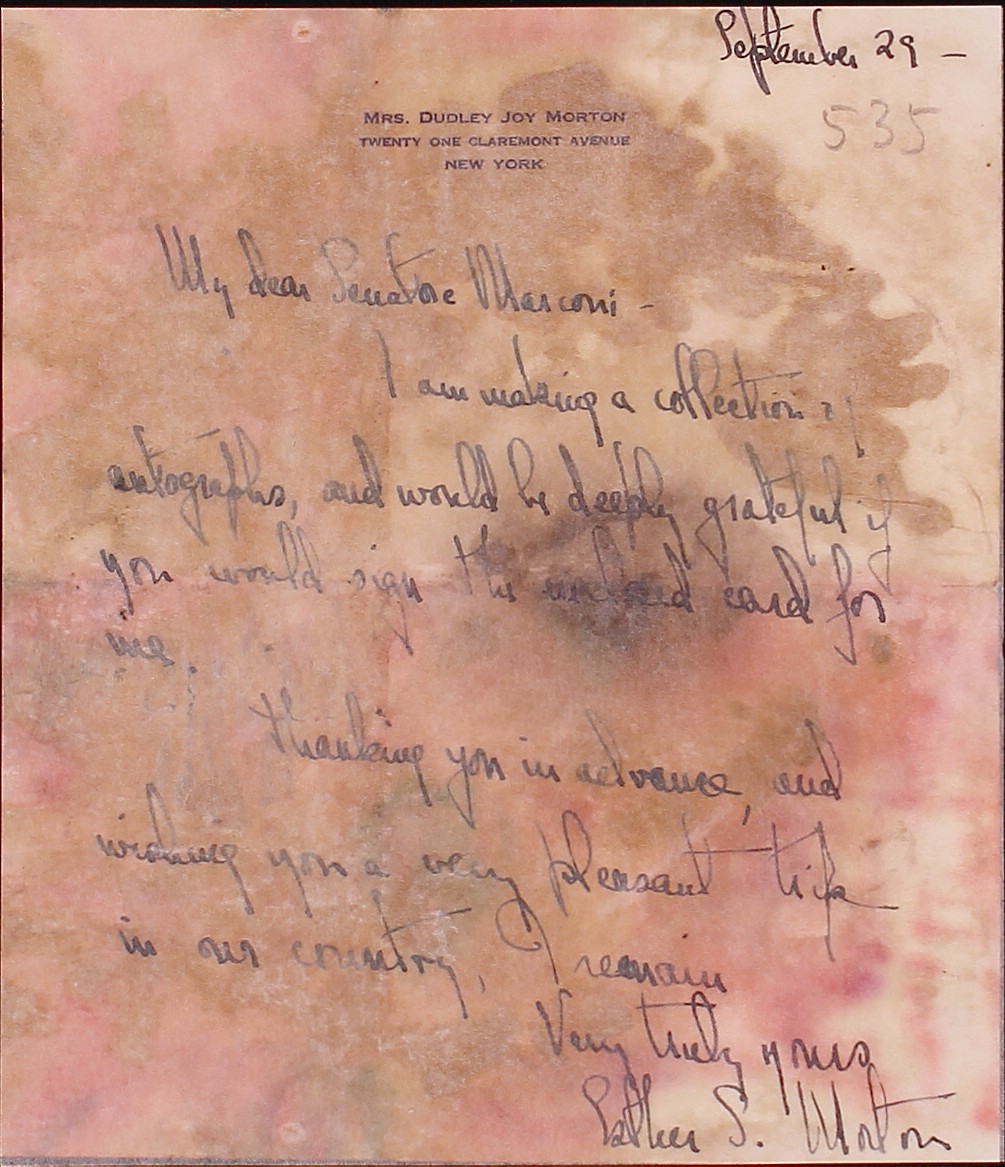 September 29 –
535
MRS. DUDLEY JOY MORTON
TWENTY ONE CLAREMONT AVENUE
NEW YORK
My dear Senatore Marconi –
I am making a collection of
autographs, and would be deeply grateful if
you would sign the enclosed card for
me.
Thanking you in advance, and
wishing you a very pleasant trip
in our country, I remain
Very truly yours
Esther S. Morton